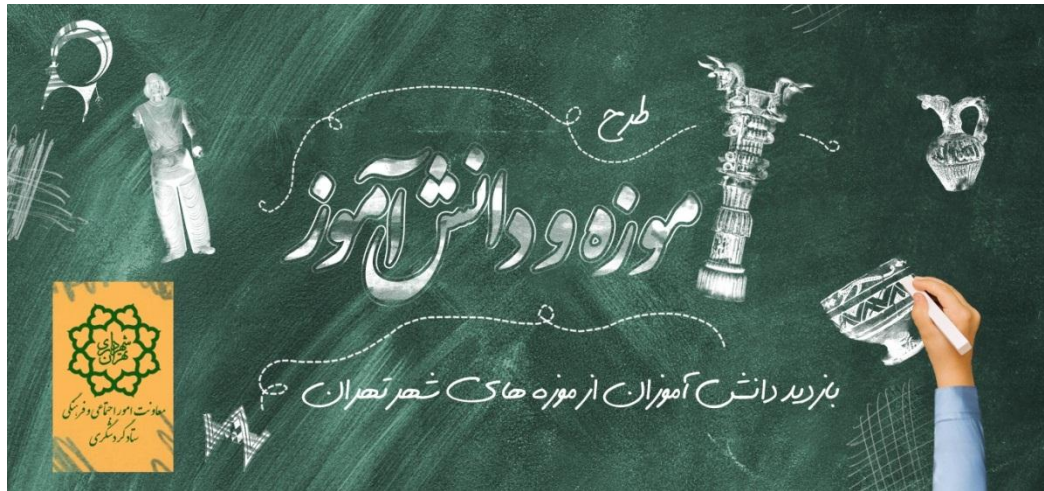 طرح
موزه و دانش آموز
بازدید دانش آموزان از موزه های شهر تهران
شهرداری تهران
معاونت امور اجتماعی و فرهنگی
ستاد گردشگری